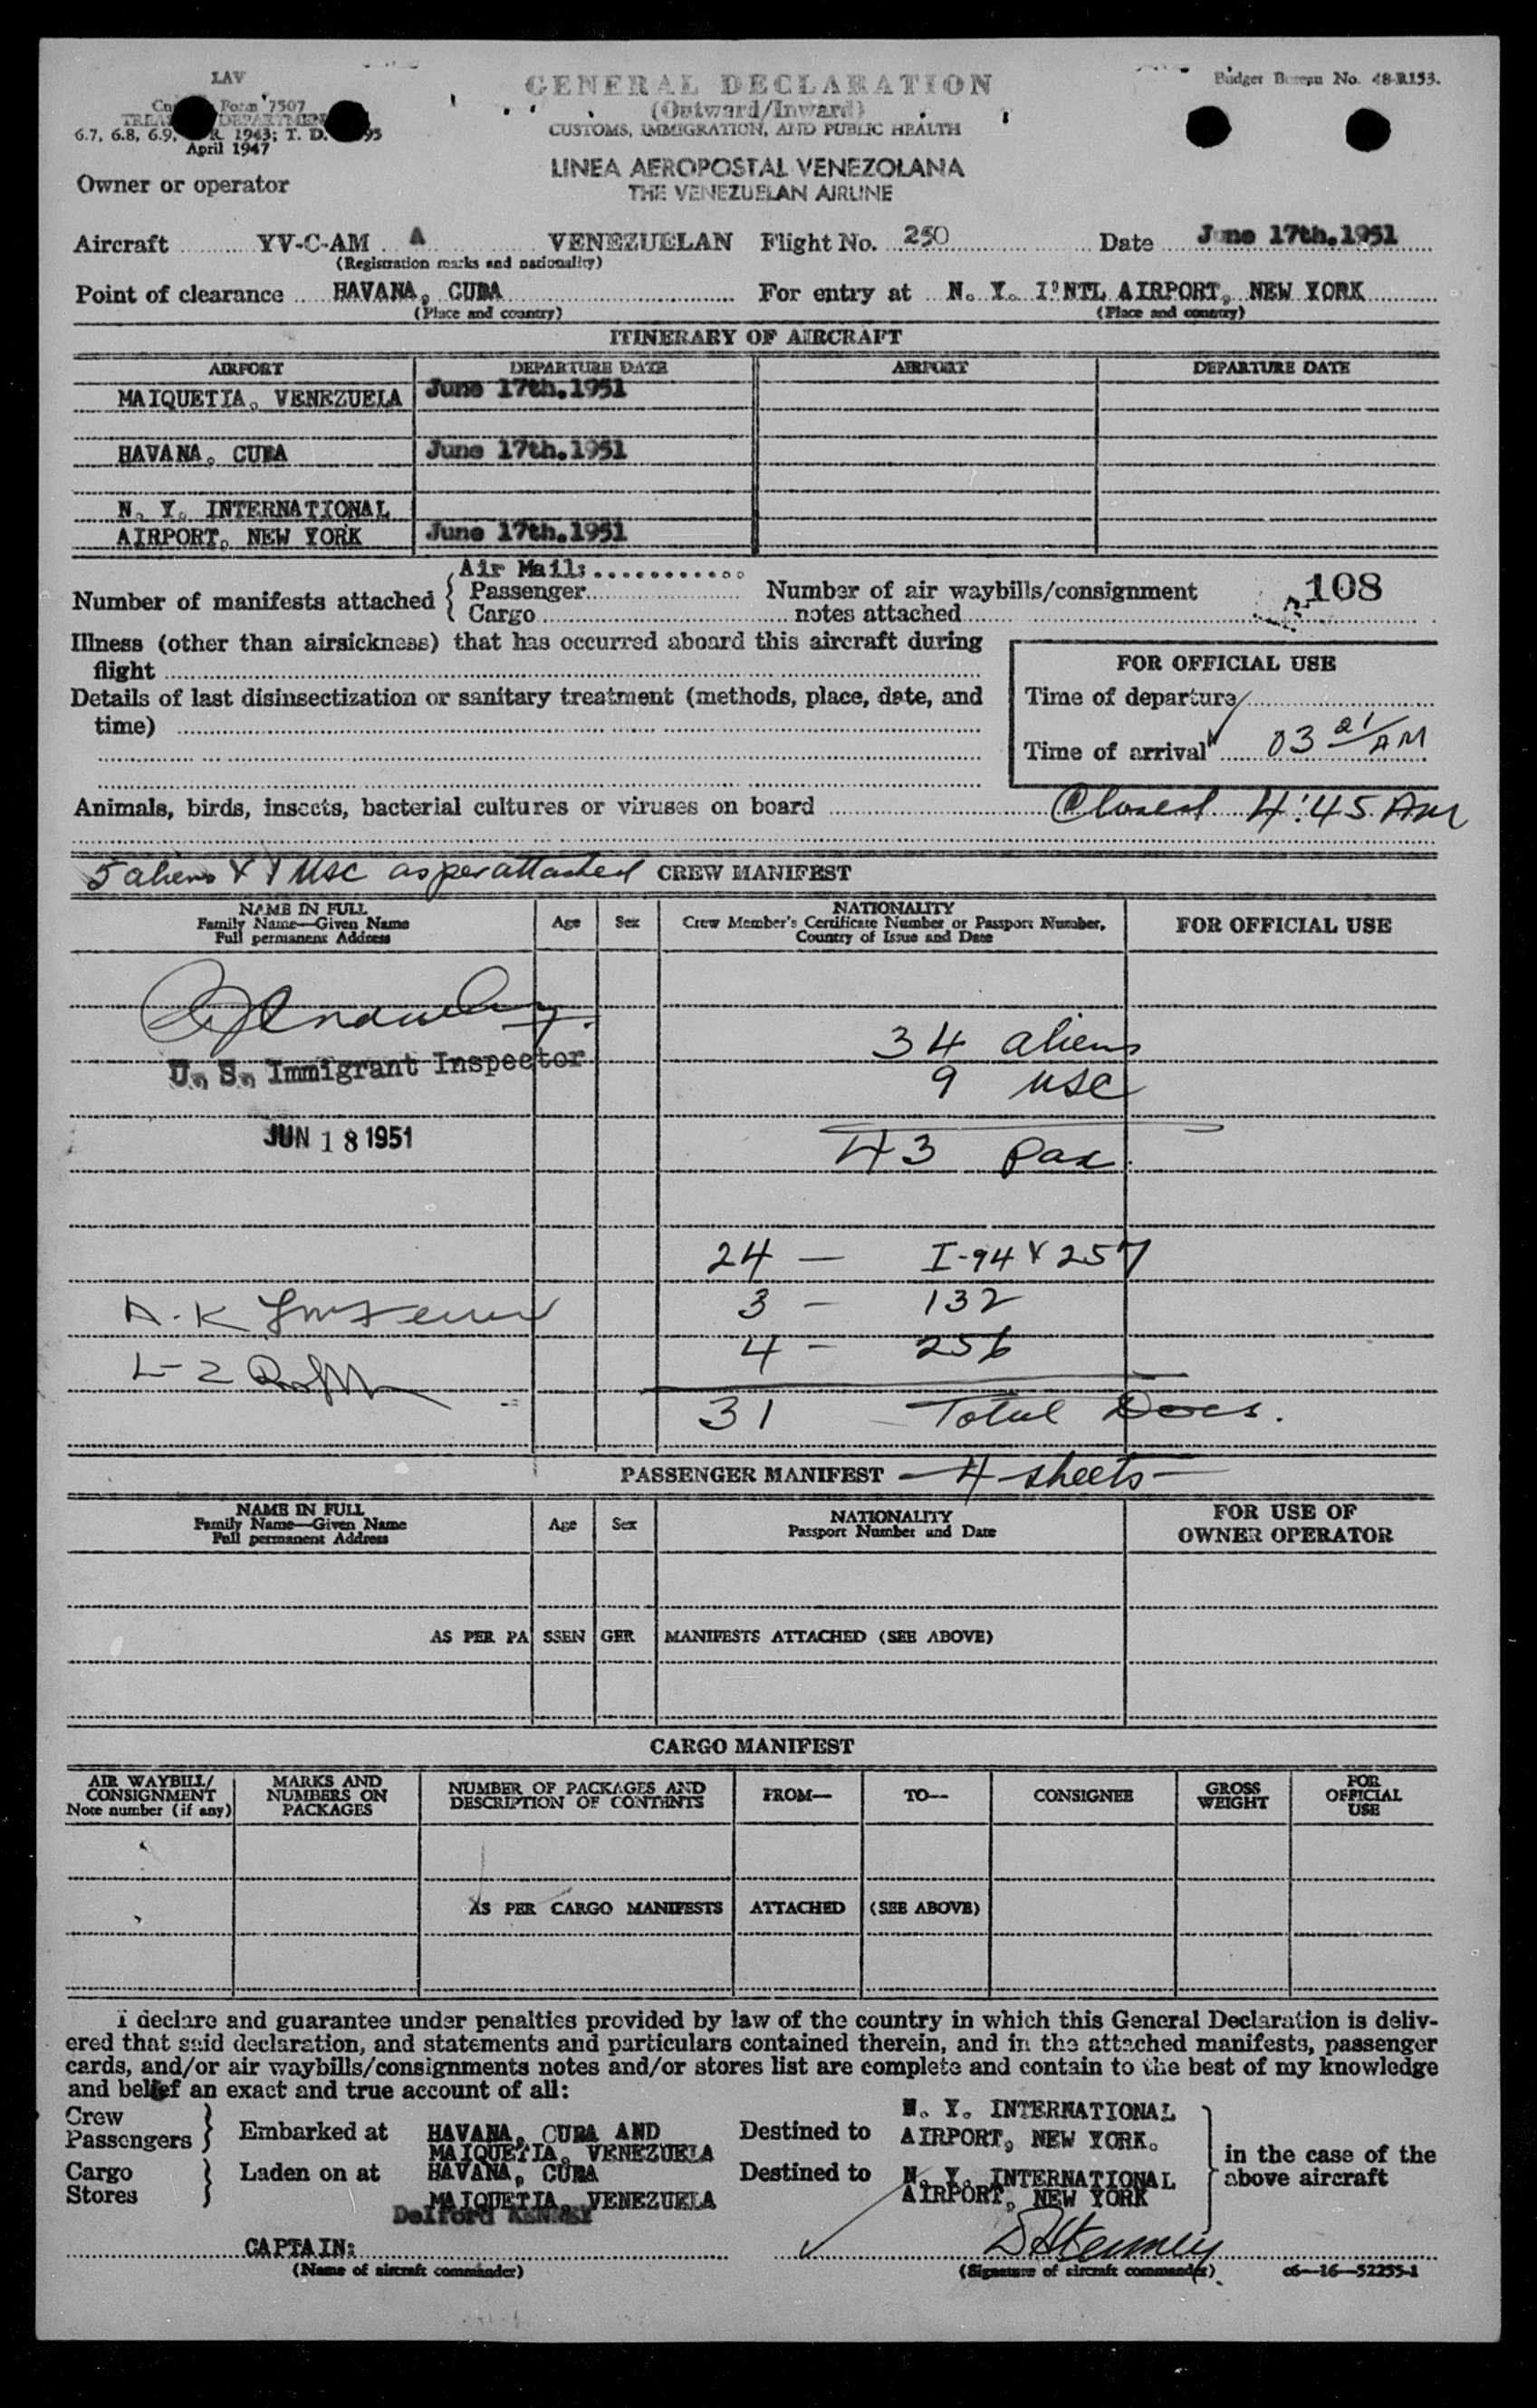 LAV
GENERAL DECLARATION
Budget Bureau No. 48-R153.
Form 7507
(Outward/Inward)
TREAS DEPARTMEN
CUSTOMS, IMMIGRATION, AND PUBLIC HEALTH
6.7, 6.8, 6.9, R. 1943; T. D. 95
April 1947
LINEA AEROPOSTAL VENEZOLANA
Owner or operator
THE VENEZUELAN AIRLINE
Aircraft YV-C-AM A VENEZUELAN Flight No. 250 Date June 17th.1951
(Registration marks and nationality)
Point of clearance HAVANA, CUBA For entry at N. Y. I'NTL AIRPORT, NEW YORK
(Place and country) (Place and country)
ITINERARY OF AIRCRAFT
AIRPORT DEPARTURE DATE AIRPORT DEPARTURE DATE
MAIQUETIA, VENEZUELA June 17th.1951
HAVANA, CUBA June 17th.1951
N. Y. INTERNATIONAL
AIRPORT, NEW YORK June 17th.1951
Air Mail:
Number of manifests attached { Passenger Number of air waybills/consignment 108
Cargo notes attached
Illness (other than airsickness) that has occurred aboard this aircraft during
flight
FOR OFFICIAL USE
Details of last disinsectization or sanitary treatment (methods, place, date, and
time)
Time of departure
Time of arrival 03 21 AM
Animals, birds, insects, bacterial cultures or viruses on board Closed 4:45 AM
5 aliens & 1 USC as per attached CREW MANIFEST
NAME IN FULL
Family Name—Given Name
Full permanent Address
Age Sex
NATIONALITY
Crew Member's Certificate Number or Passport Number,
Country of Issue and Date
FOR OFFICIAL USE
34 aliens
U. S. Immigrant Inspector
9 USC
JUN 18 1951
43 Pax
24 — I-94 & 257
3 — 132
4 — 256
31 Total Docs.
PASSENGER MANIFEST — 4 sheets —
NAME IN FULL
Family Name—Given Name
Full permanent Address
Age Sex
NATIONALITY
Passport Number and Date
FOR USE OF
OWNER OPERATOR
AS PER PA SSEN GER MANIFESTS ATTACHED (SEE ABOVE)
CARGO MANIFEST
AIR WAYBILL/
CONSIGNMENT
Note number (if any)
MARKS AND
NUMBERS ON
PACKAGES
NUMBER OF PACKAGES AND
DESCRIPTION OF CONTENTS
FROM— TO— CONSIGNEE
GROSS
WEIGHT
FOR
OFFICIAL
USE
AS PER CARGO MANIFESTS ATTACHED (SEE ABOVE)
I declare and guarantee under penalties provided by law of the country in which this General Declaration is deliv-
ered that said declaration, and statements and particulars contained therein, and in the attached manifests, passenger
cards, and/or air waybills/consignments notes and/or stores list are complete and contain to the best of my knowledge
and belief an exact and true account of all:
Crew
Passengers } Embarked at HAVANA, CUBA AND
MAIQUETIA, VENEZUELA
Destined to N. Y. INTERNATIONAL
AIRPORT, NEW YORK.
Cargo
Stores } Laden on at HAVANA, CUBA
MAIQUETIA, VENEZUELA
Destined to N. Y. INTERNATIONAL
AIRPORT, NEW YORK
in the case of the
above aircraft
Delford
CAPTAIN:
(Name of aircraft commander) (Signature of aircraft commander) c6—16—52255-1